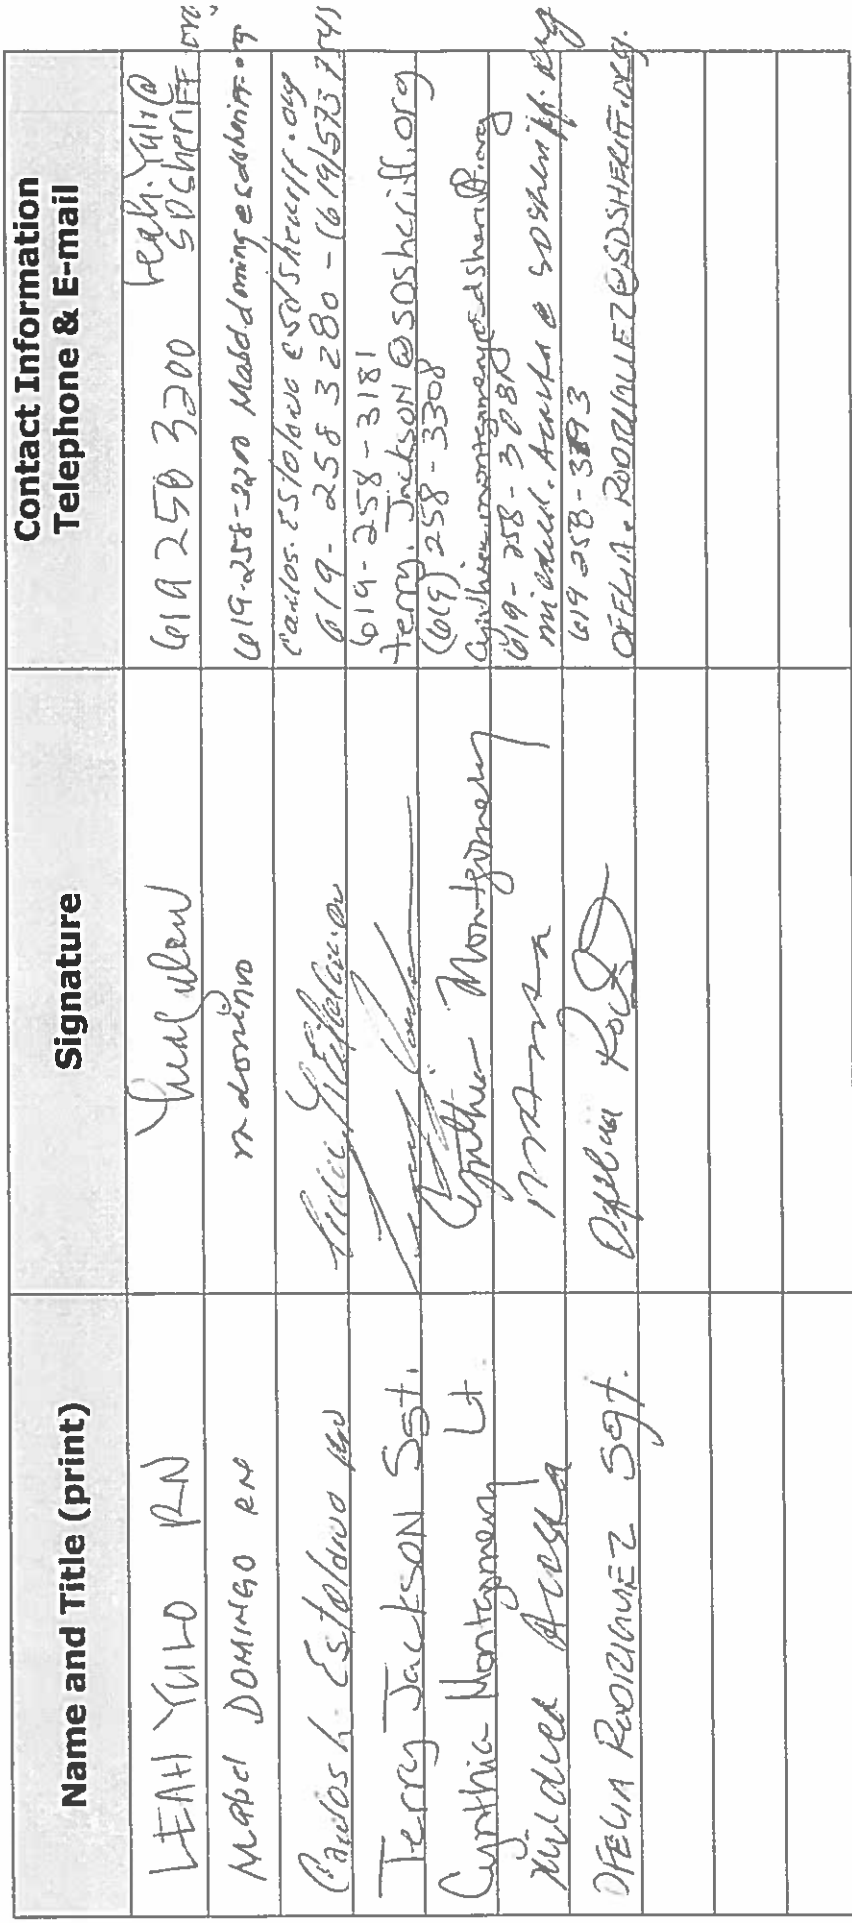 Name and Title (print)
Signature
Contact Information
Telephone & E-mail
LEAH YULO RN
619 258 3200
Leah.Yulo@
SDSheriff.org
Mabel DOMINGO RN
m domingo
619-258-3200 Mabel.domingo@sdsheriff.org
Carlos L. Estolano
Carlos.Estolano@sdsheriff.org
619-258 3280 - (619)573 7541
Terry Jackson Sgt.
619-258-3181
Terry.Jackson@SDSheriff.org
Cynthia Montgomery Lt
Cynthia Montgomery
(619) 258-3308
Cynthia.montgomery@sdsheriff.org
Mildred Acosta
619-258-
mildred.Acosta@sdsheriff.org
OFELIA RODRIGUEZ Sgt.
619 258-
OFELIA.RODRIGUEZ@SDSHERIFF.ORG.